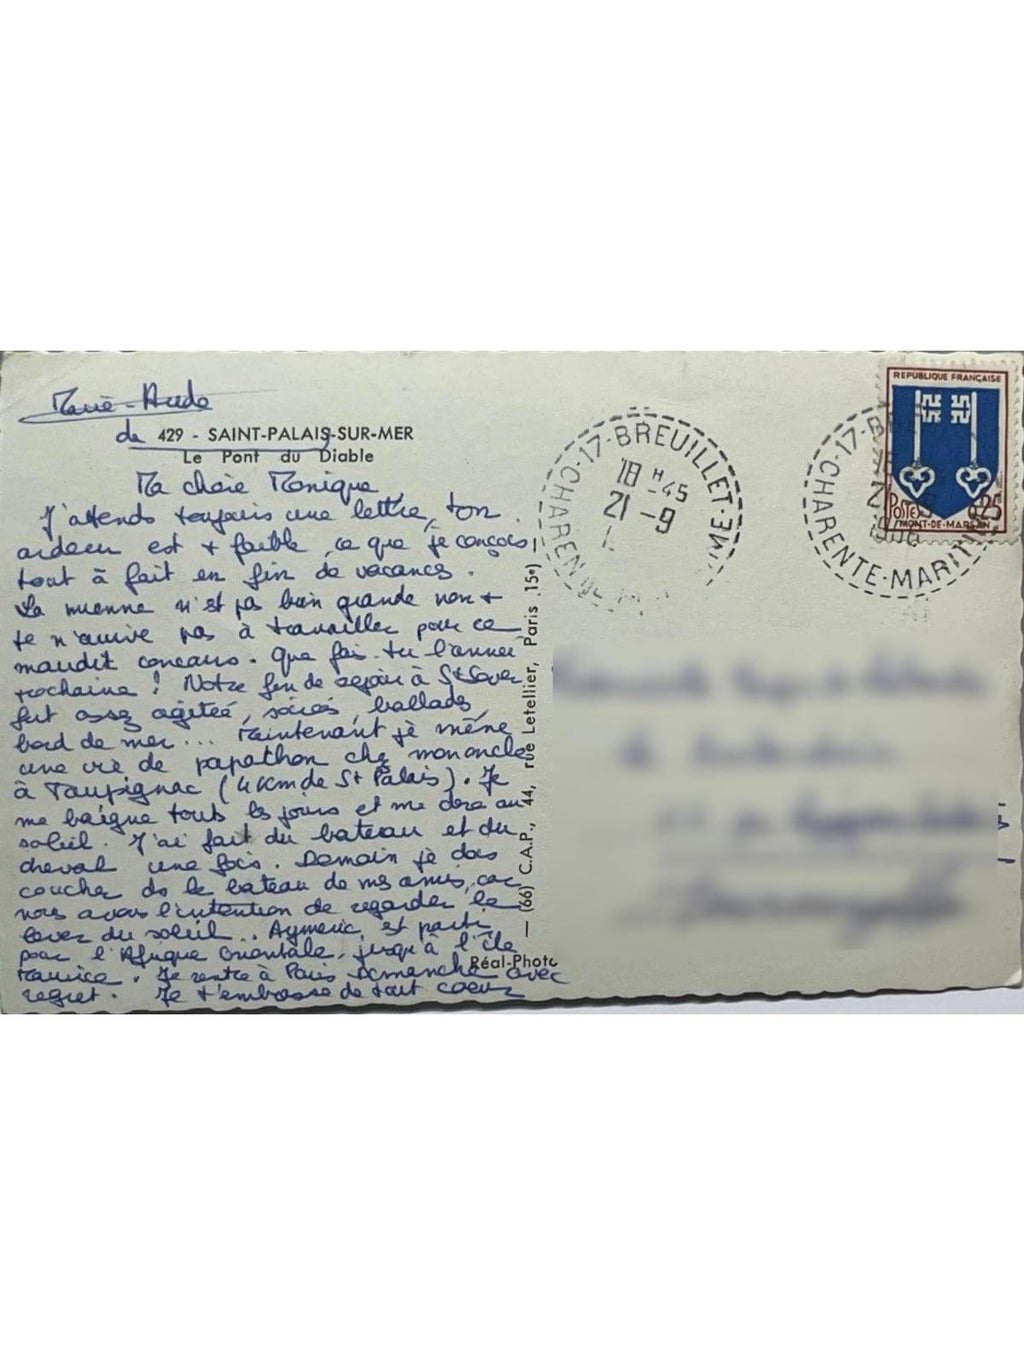 Marie-Aude
de
429 - SAINT-PALAIS-SUR-MER
Le Pont du Diable
Ma chère Monique
J'attends toujours une lettre, ton
ardeur est + faible, ce que je conçois
tout à fait en fin de vacances.
La mienne n'est pas bien grande non +
Je n'arrive pas à travailler pour ce
maudit concours. Que fais-tu l'année
prochaine ! Notre fin de séjour à St Sever
fut assez agitée, soirées, ballades,
bord de mer... Maintenant je mène
une vie de papathon chez mon oncle
à Taupignac (4 km de St Palais). Je
me baigne tous les jours et me dore au
soleil. J'ai fait du bateau et du
cheval une fois. Demain je dois
coucher ds le bateau de mes amis, car
nous avons l'intention de regarder le
lever du soleil.. Aymeric, est parti
pour l'Afrique Orientale, jusqu'à l'île
Maurice. Je rentre à Paris Dimanche avec
regret. Je t'embrasse de tout coeur
— (66) C.A.P., 44, rue Letellier, Paris 15e) —
Réal-Photo
17-BREUILLET
18 H -45
21 -9
CHAREN IME
REPUBLIQUE FRANÇAISE
POSTES 0,25
MONT-DE-MARSAN
17-B
CHARENTE-MARITIM